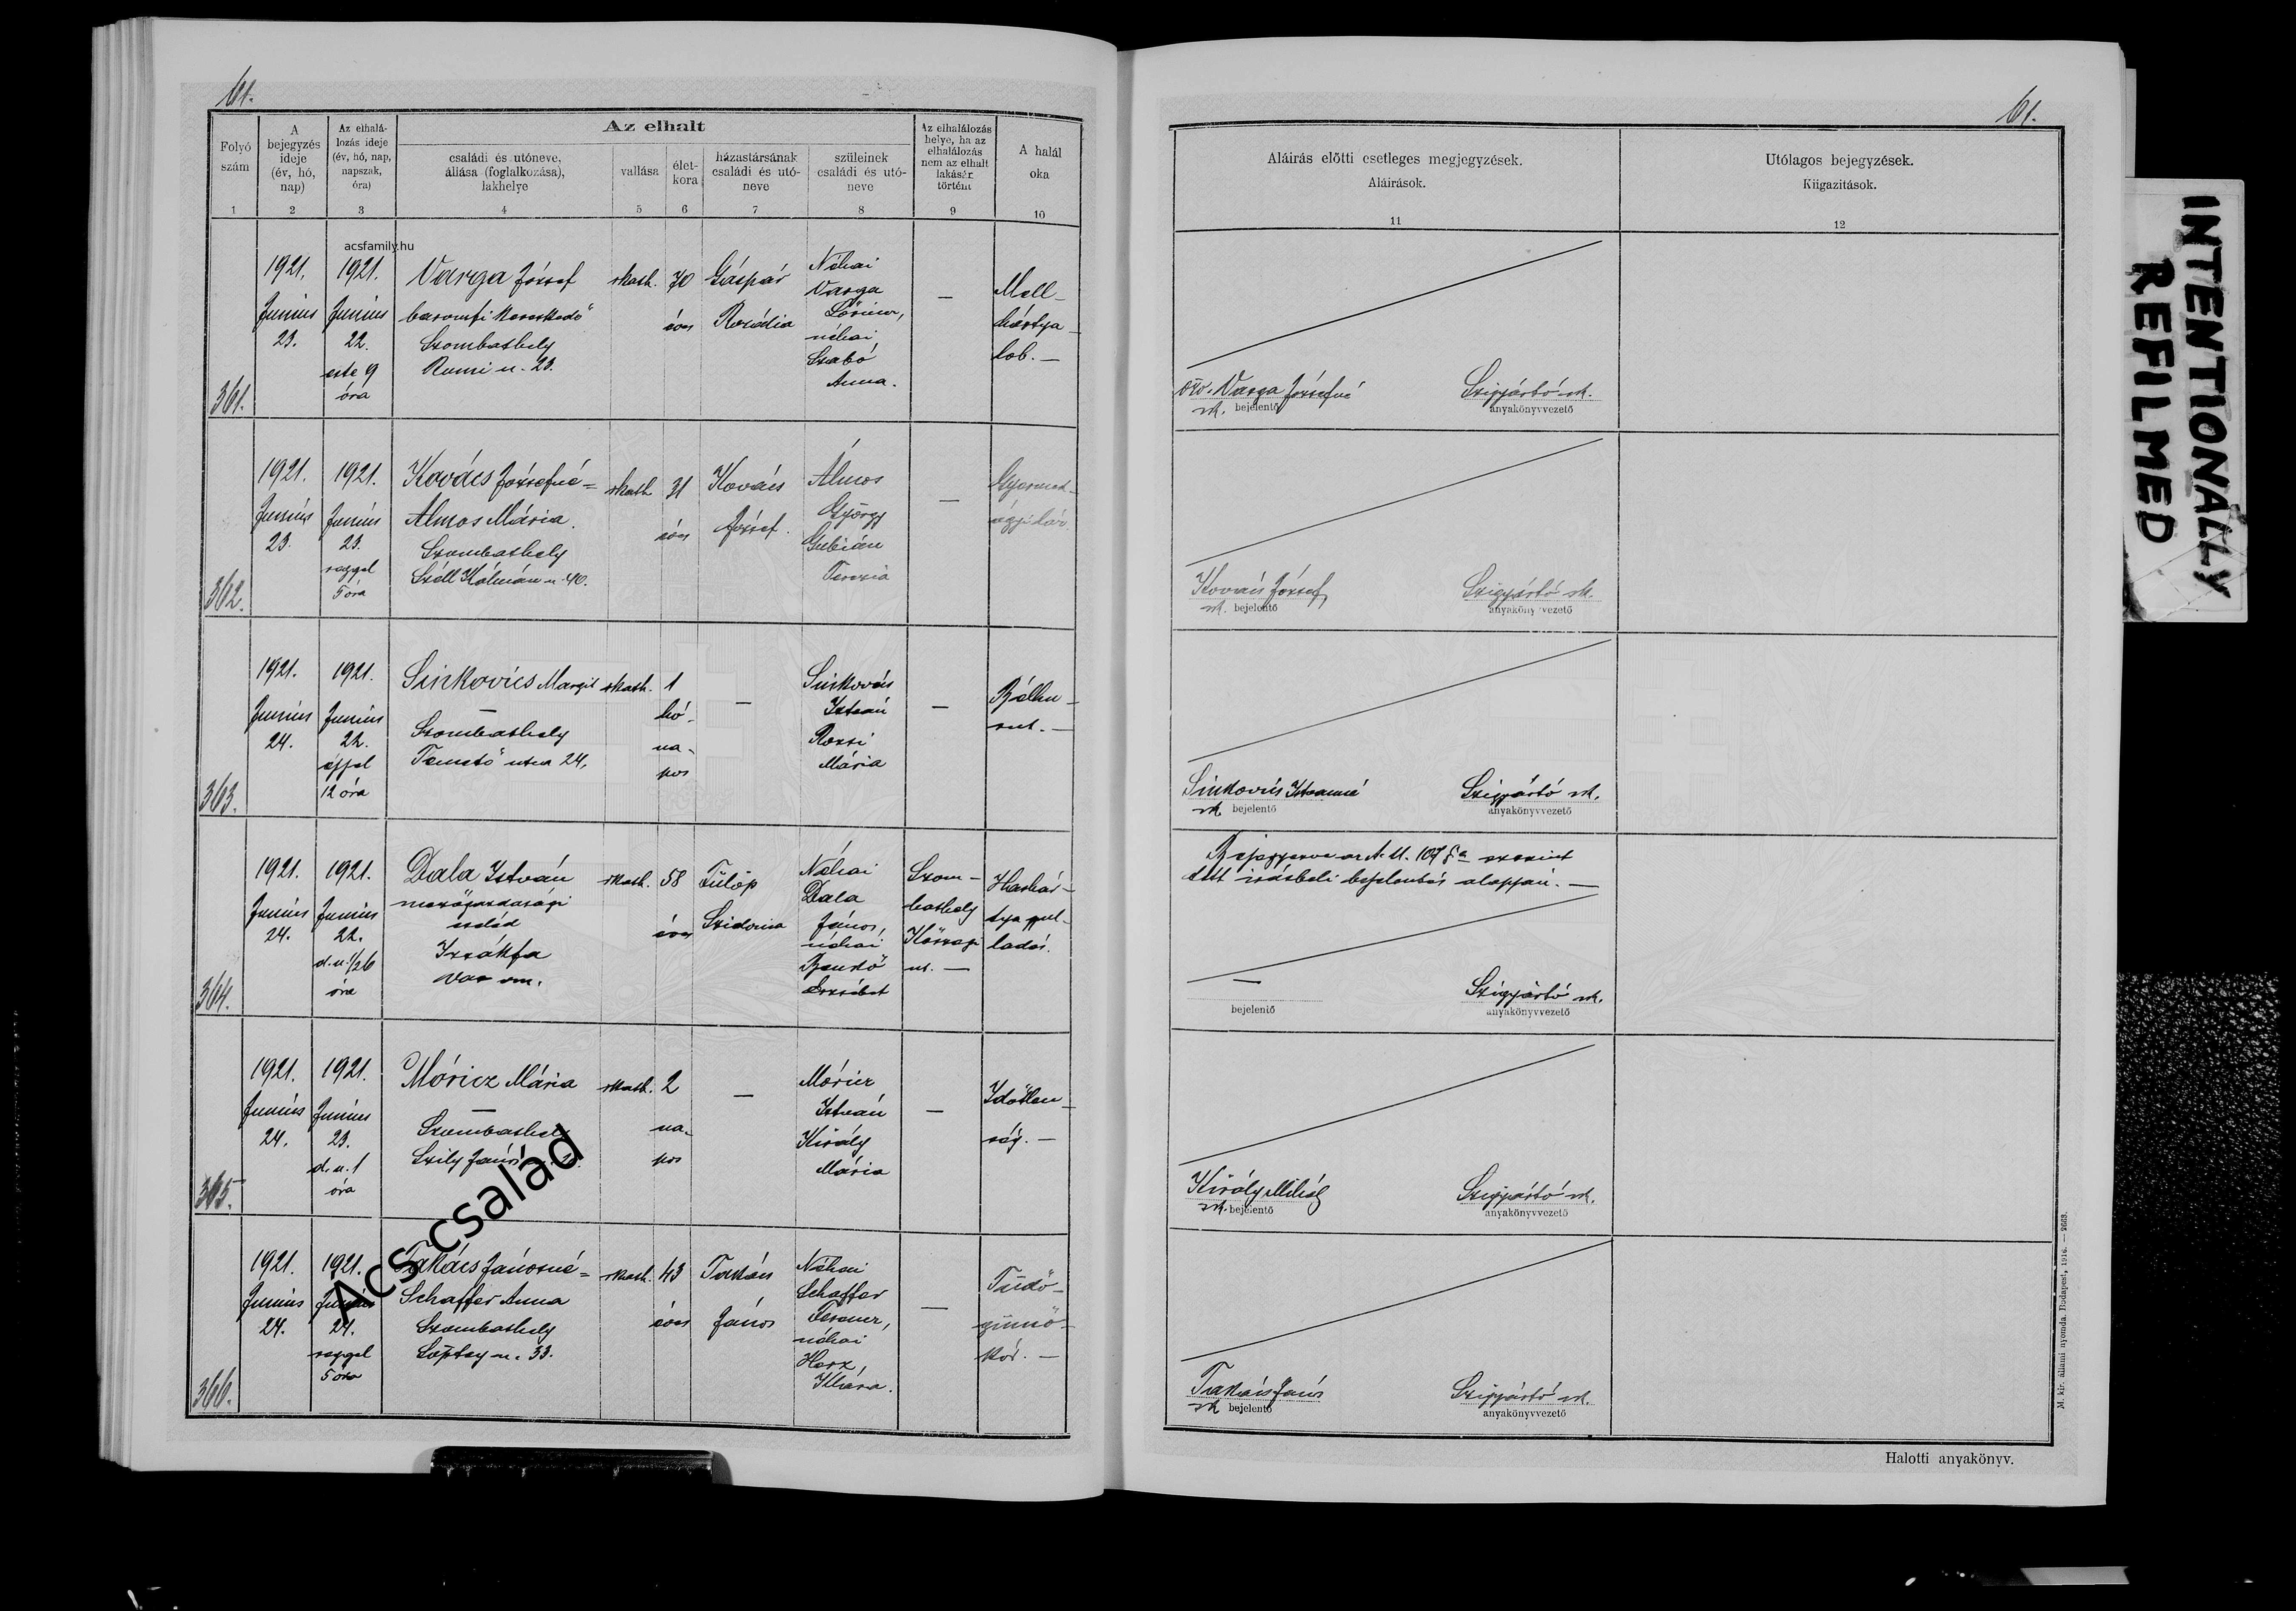 61.
Folyó
szám
A
bejegyzés
ideje
(év, hó,
nap)
Az elhalá-
lozás ideje
(év, hó, nap,
napszak,
óra)
Az elhalt
családi és utóneve,
állása (foglalkozása),
lakhelye
vallása
élet-
kora
házastársának
családi és utó-
neve
szüleinek
családi és utó-
neve
Az elhalálozás
helye, ha az
elhalálozás
nem az elhalt
lakásár
történt
A halál
oka
1 2 3 4 5 6 7 8 9 10
acsfamily.hu
361.
1921.
Junius
23.
1921.
Junius
22.
este 9
óra
Varga József
baromfi kereskedő
Szombathely
Rumi u. 23.
rkath.
70
éves
Gáspár
Rozália
Néhai
Varga
Lőrincz,
néhai
Szabó
Anna.
—
Mell-
hártya-
lob. —
362.
1921.
Junius
23.
1921.
Junius
23.
reggel
5 óra
Kovács Józsefné =
Álmos Mária
Szombathely
Széll Kálmán u. 40.
rkath
31
éves
Kovács
József.
Álmos
György
Gubián
Terézia
—
Gyermek-
ágyi láz.
363.
1921.
Junius
24.
1921.
Junius
22.
éjfél
12 óra
Sinkovics Margit
—
Szombathely
Temető utca 24.
rkath.
1
hó-
na-
pos
—
Sinkovics
István
Rozsi
Mária
—
Bélhu-
rut. —
364.
1921.
Junius
24.
1921.
Junius
22.
d. u. 1/2 6
óra
Dala István
mezőgazdasági
cseléd
Izsákfa
Vas vm.
rkath.
58
éves
Fülöp
Szidonia
Néhai
Dala
János,
néhai
Bendő
Erzsébet
Szom-
bathely
Kőszegi
ut. —
Hashár-
tya gyul-
ladás.
365.
1921.
Junius
24.
1921.
Junius
23.
d. u. 1
óra
Móricz Mária
—
Szombathely
Szily János
rkath.
2
na-
pos
—
Móricz
István
Király
Mária
—
Időtlen-
ség. —
366.
1921.
Junius
24.
1921.
Junius
24.
reggel
5 óra
Takács Jánosné =
Schaffer Anna
Szombathely
u. 33.
rkath.
43
éves
Takács
János
Néhai
Schaffer
Ferencz,
néhai
Klára.
—
Tüdő-
gümő-
kór. —
Ács család
61.
Aláirás előtti esetleges megjegyzések.
Aláirások.
11
Utólagos bejegyzések.
Kiigazitások.
12
özv. Varga Józsefné
sk. bejelentő
Szigyártó sk.
anyakönyvvezető
Kovács József
sk. bejelentő
Szigyártó sk.
anyakönyvvezető
Sinkovics Istvánné
sk. bejelentő
Szigyártó sk.
anyakönyvvezető
Bejegyezve az A. U. 107 §-a szerint
tett irásbeli bejelentés alapján. —
—
bejelentő
Szigyártó sk.
anyakönyvvezető
Király Mihály
sk. bejelentő
Szigyártó sk.
anyakönyvvezető
Takács János
sk bejelentő
Szigyártó sk.
anyakönyvvezető
M. kir. állami nyomda. Budapest, 1916. — 2663.
Halotti anyakönyv.
INTENTIONALLY
REFILMED